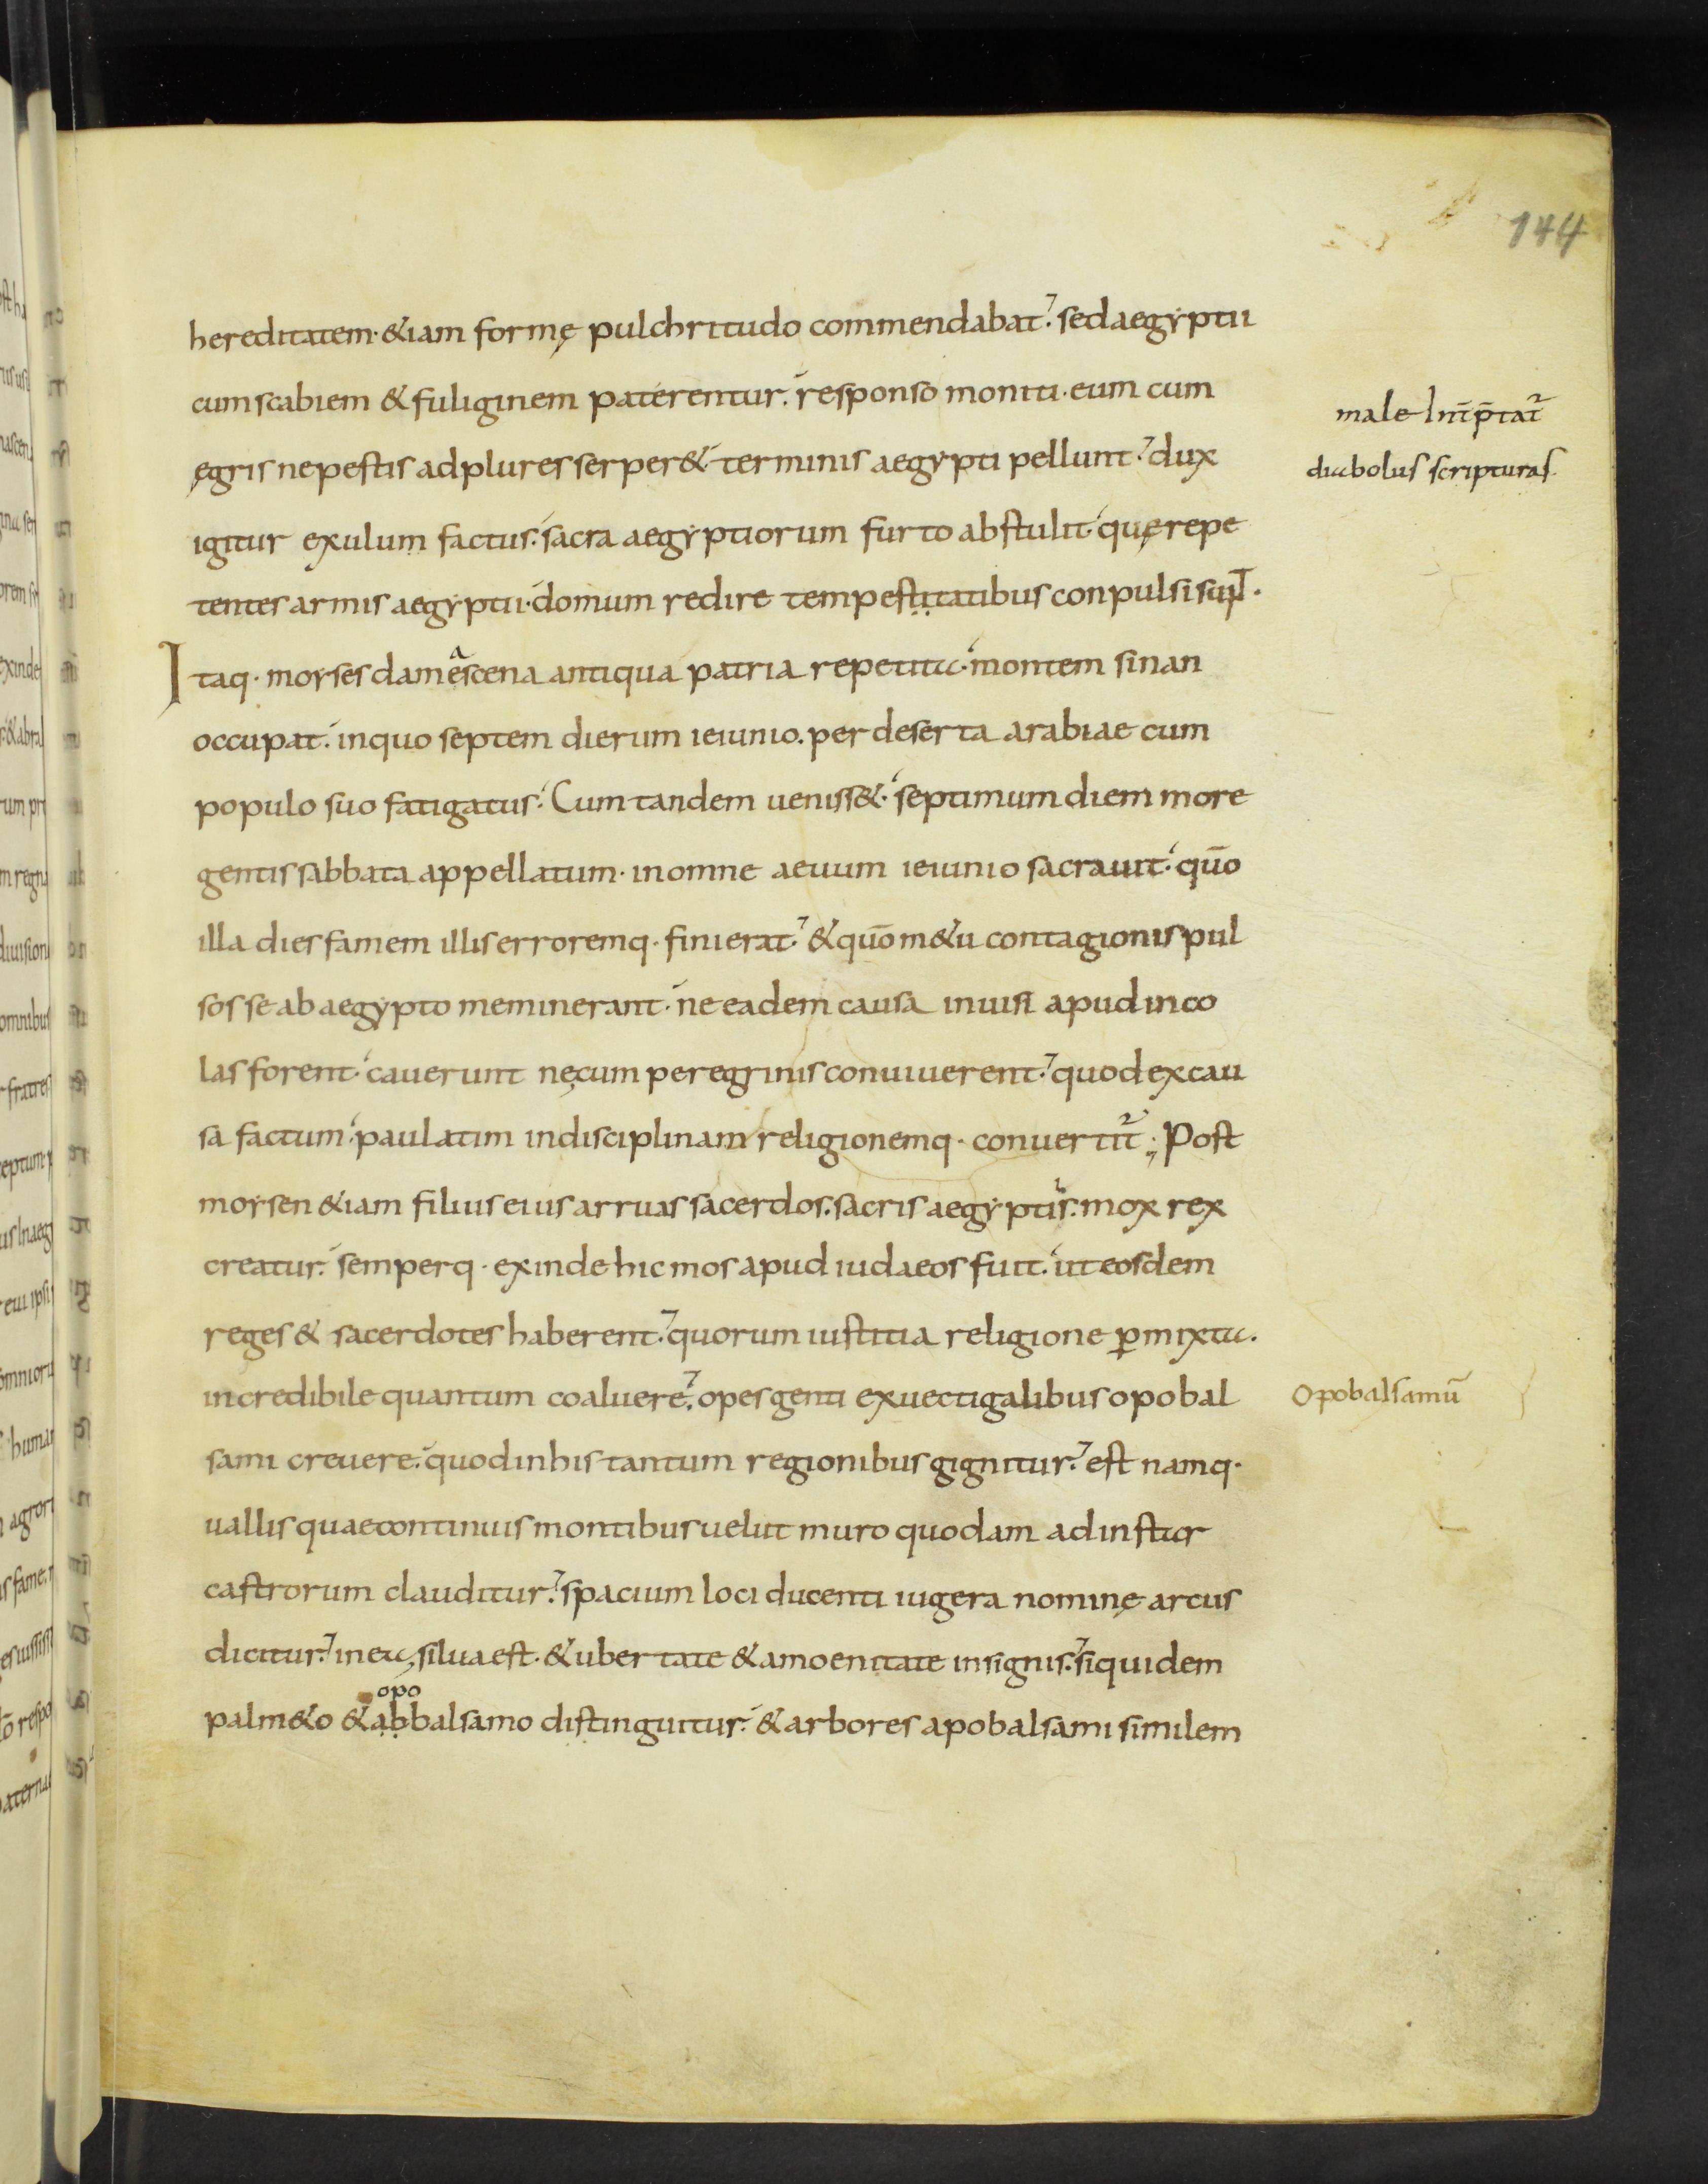 144
hereditatem · &iam formę pulchritudo commendabat. sed aegyptii
cum scabiem & fuliginem paterentur. responso moniti · eum cum
ęgris ne pestis ad plures serper& · terminis aegypti pellunt. dux
igitur exulum factus. sacra aegyptiorum furto abstulit · quę repe
tentes armis aegyptii · domum redire tempestitatibus conpulsi sunt ·
Itaq · moyses damescena antiqua patria repetita · montem sinan
occupat. in quo septem dierum ieiunio. per deserta arabiae cum
populo suo fatigatus. Cum tandem ueniss& · septimum diem more
gentis sabbata appellatum · in omne aeuum ieiunio sacrauit · quō
illa dies famem illis erroremq · finierat. & quōm &u contagionis pul
sos se ab aegypto meminerant · ne eadem causa inuisi apud inco
las forent · cauerunt nę cum peregrinis conuiuerent. quod ex cau
sa factum · paulatim in disciplinam religionemq · conuertit̃ ; Post
moysen &iam filius eius arruas sacerdos. sacris aegyptiis. mox rex
creatur. semperq · exinde hic mos apud iudaeos fuit. ut eosdem
reges & sacerdotes haberent. quorum iustitia religione ꝑmixta.
incredibile quantum coaluere. opes genti ex uectigalibus opobal
sami creuere. quod in his tantum regionibus gignitur. est namq ·
uallis quae continuis montibus uelut muro quodam ad instar
castrorum clauditur. spacium loci ducenti iugera nominę arcus
dicitur. in ea silua est · & ubertate & amoenitate insignis. siquidem
opo
palm&o & abbalsamo distinguitur. & arbores apobalsami similem
male Int̄p̄tat̃
diabolus scripturas
Opobalsamū